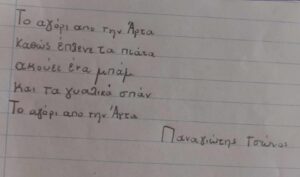 Το αγόρι απο την Άρτα
Καθώς έπλενε τα πιάτα
ακούει ένα μπάμ
και τα γυαλικά σπάν
Το αγόρι απο την Άρτα
Παναγιώτης Τσώνος